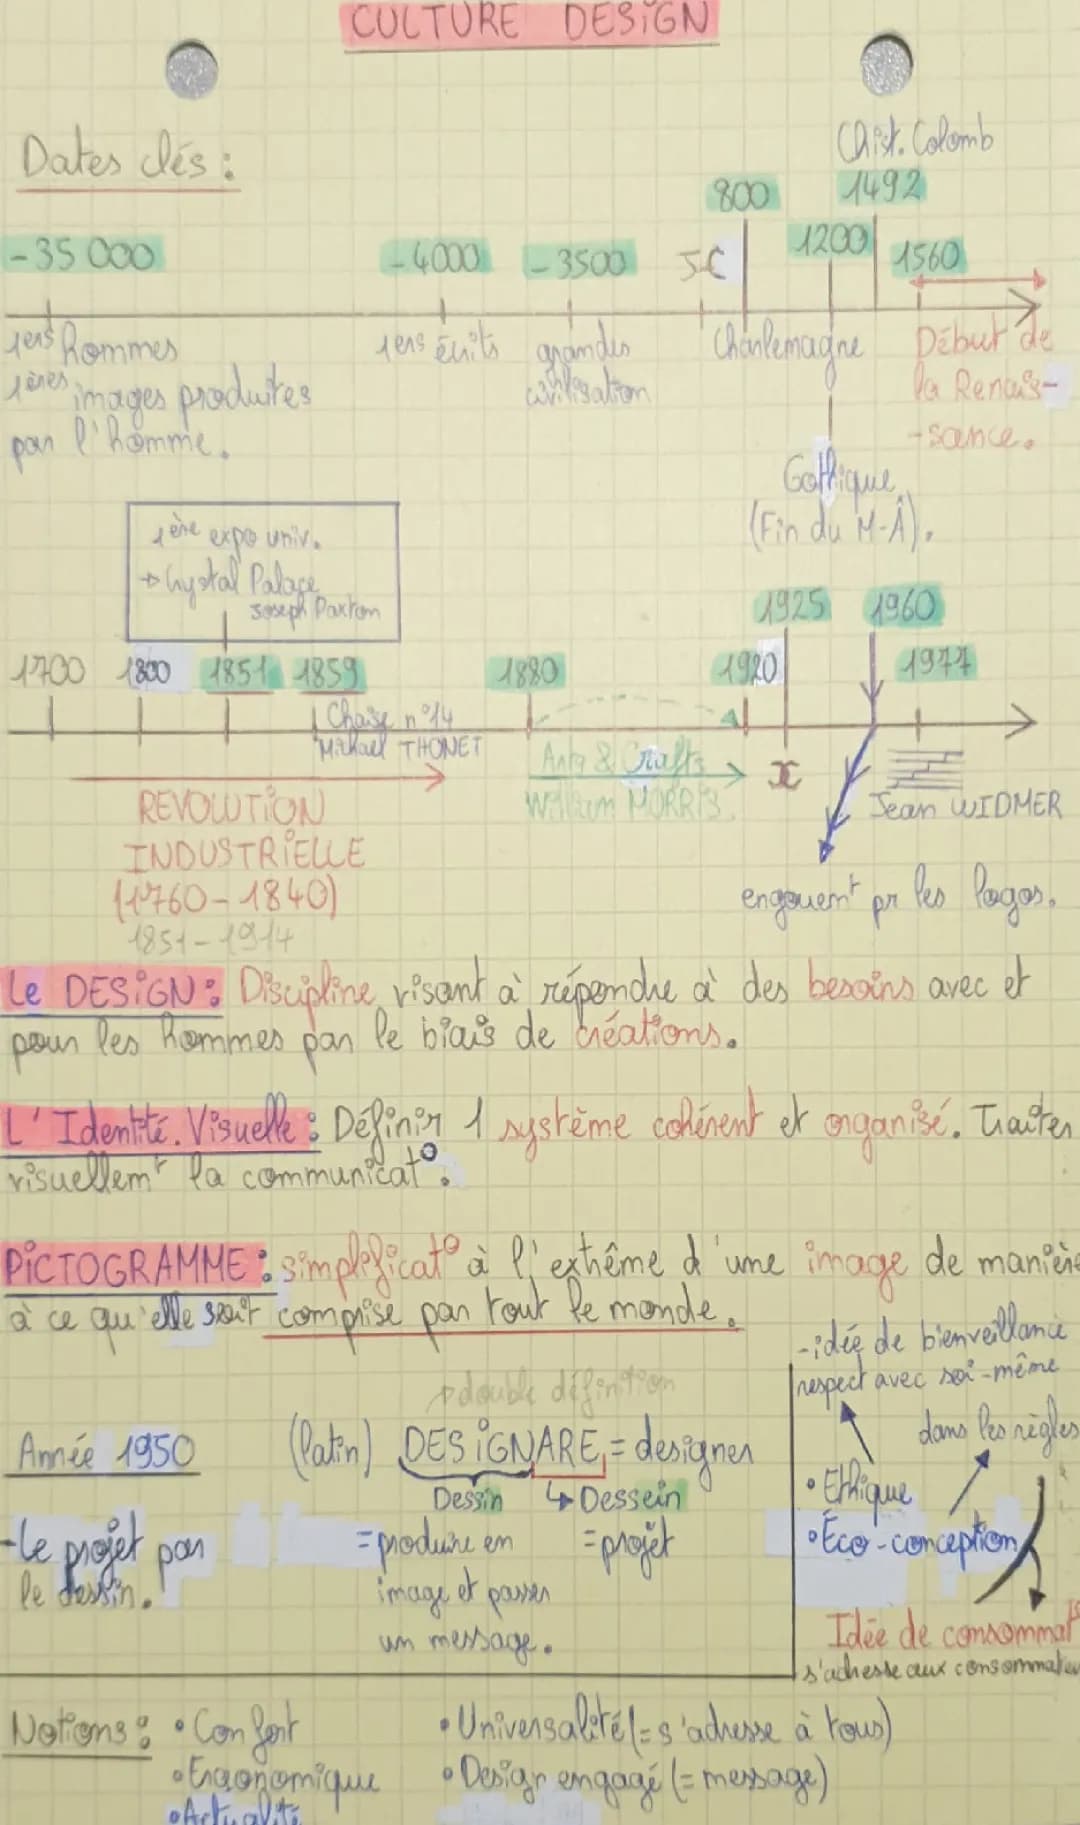 CULTURE DESiGN
Dates clés :
Chist. Colomb
800
1492
-35 000
-4000
-3500
5C
1200
1560
1ers hommes
1ères images produites
par l'homme.
1ers écrits
grandes
civilisation
Charlemagne
Début de
la Renais-
-sance.
Gothique
(Fin du M-Â).
1ère expo univ.
Crystal Palace
Joseph Paxton
1925
1960
1700
1800
1851
1859
1880
1920
1977
Chaise n°14
Michael THONET
Arts & Crafts
William MORRIS.
Jean WIDMER
REVOLUTiON
INDUSTRiELLE
(1760-1840)
1851-1914
engouemt pr les logos.
Le DESiGN : Discipline visant à répondre à des besoins avec et
pour les hommes par le biais de créations.
L'Identité.Visuelle : Définir 1 système cohérent et organisé. Traiter
visuellemt la communicat°.
PiCTOGRAMME : simplificat° à l'extrême d'une image de manière
à ce qu'elle soit comprise par tout le monde.
-idée de bienveillance
respect avec soi-même
double définition
dans les règles
Année 1950
(latin) DESiGNARE = designer
Dessin
Dessein
• Ethique
• Éco-conception
-Le projet par
le dessin.
= produire en
image et passer
un message.
= projet
Idée de consommat°
s'adresse aux consommateu
Notions :
• Confort
• Universalité (= s'adresse à tous)
• Ergonomique
• Design engagé (= message)
• Actualité